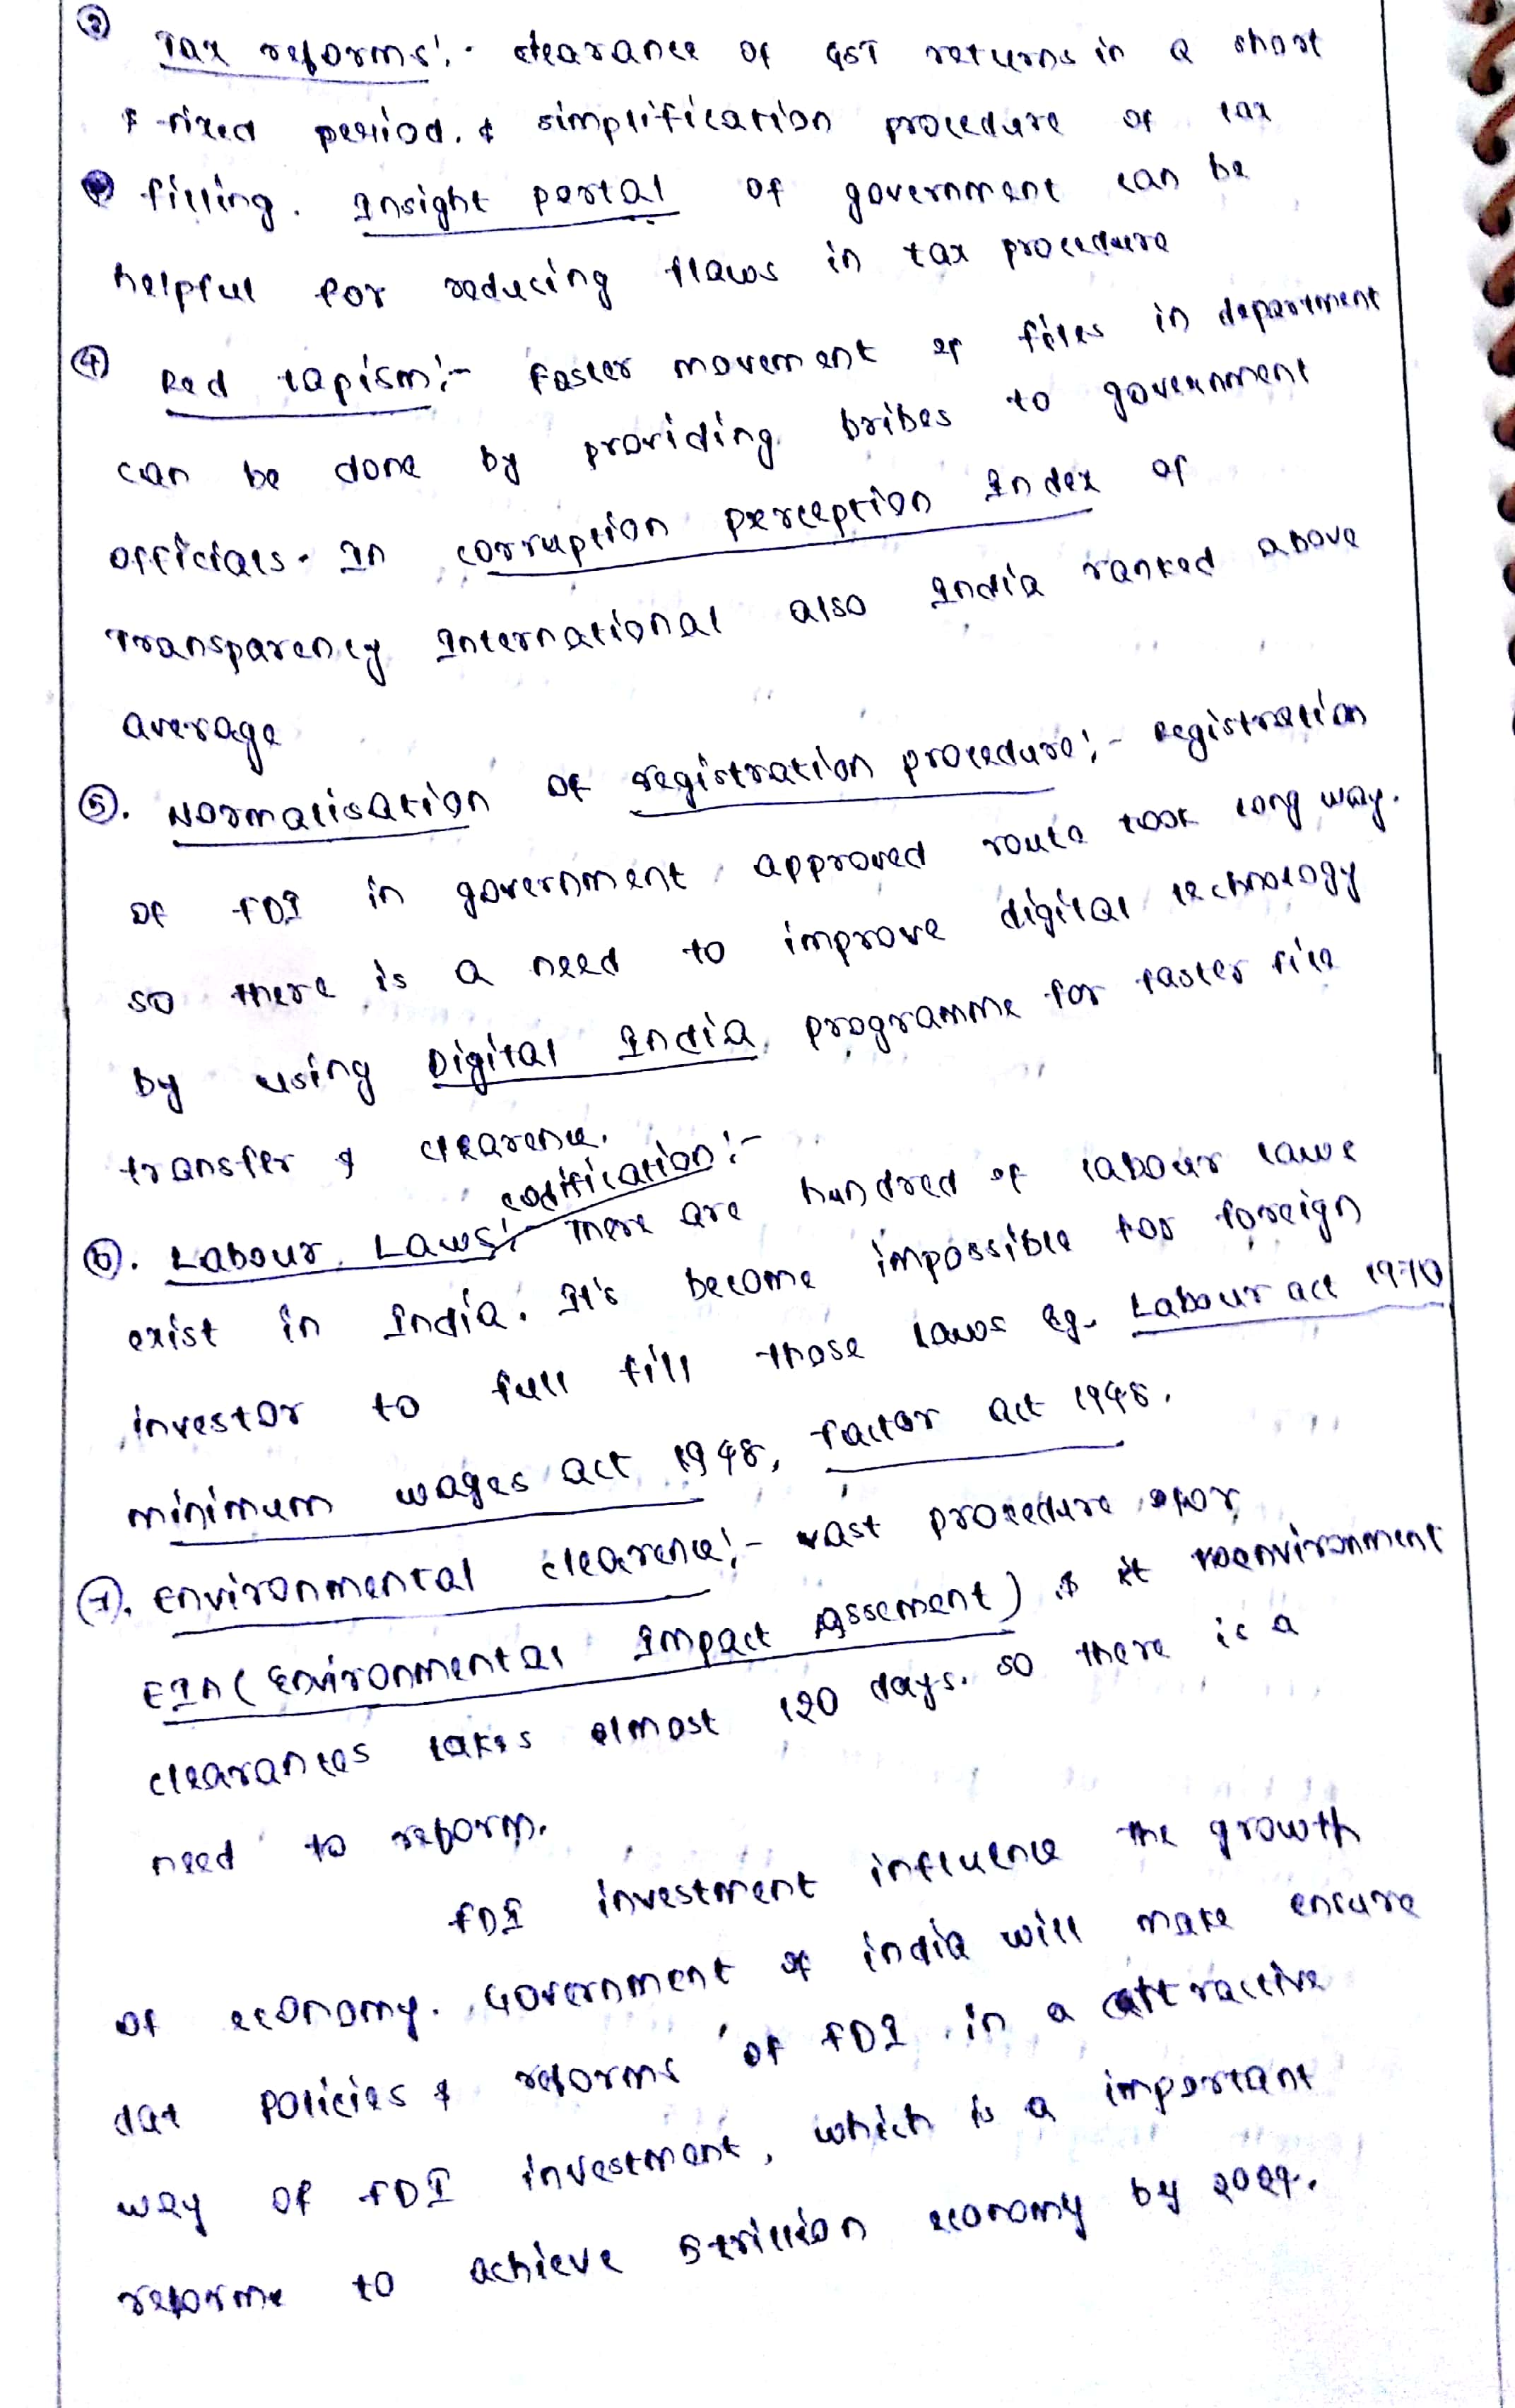 ③ Tax reforms:- clearance of GST returns in a short
& fixed period. & simplification procedure of tax
filling. Insight portal of government can be
helpful for reducing flaws in tax procedure
④ Red tapism:- Faster movement of files in department
can be done by providing bribes to government
officials. In corruption perception Index of
Transparency International also India ranked above
average
⑤. Normalisation of registration procedure:- Registration
of FDI in government approved route took long way.
so there is a need to improve digital technology
by using Digital India programme for faster file
transfer & clearence.
⑥. Labour Laws codification:- There are hundred of labour laws
exist in India. It's become impossible for foreign
investor to full fill those laws eg. Labour act 1970
minimum wages act 1948, factor act 1948.
⑦. Environmental clearence:- vast procedure for
EIA (Environmental Impact Assement) & environment
clearances takes almost 120 days. so there is a
need to reform.
FDI investment influence the growth
of economy. Government of india will make ensure
dat policies & reforms of FDI in a attractive
way of FDI investment, which is a important
reforms to achieve 5 trillion economy by 2024.